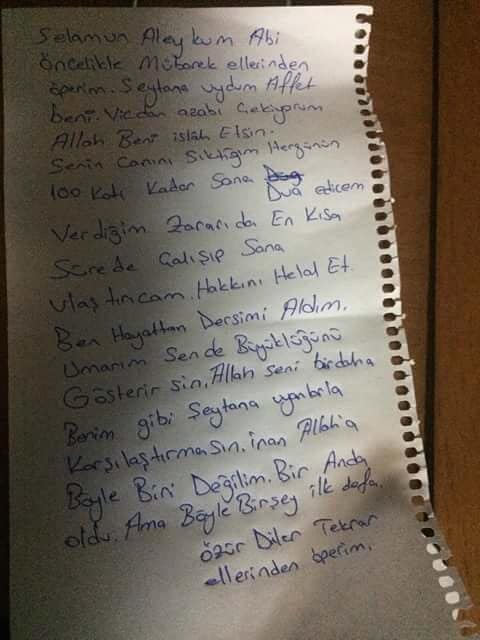 Selamun Aleykum Abi
öncelikle Mübarek ellerinden
öperim. Şeytana uydum Affet
beni. Vicdan azabı Çekiyorum
Allah Beni islâh Etsin.
Senin Canını Sıktığım Hergünün
100 Katı Kadar Sana
Dua edicem
Verdiğim Zararıda En Kısa
Sürede Çalışıp Sana
ulaştırıcam. Hakkını Helal Et.
Ben Hayattan Dersimi Aldım.
Umarım Sende Büyüklüğünü
Gösterirsin. Allah seni birdaha
Benim gibi Şeytana uyanlarla
Karşılaştırmasın. inan Allah'a
Böyle Biri Değilim. Bir Anda
oldu. Ama Böyle Birşey ilk defa.
özür Diler Tekrar
ellerinden öperim.